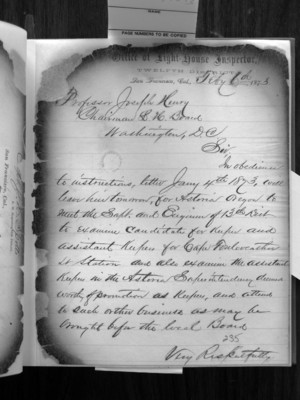 PAGE NUMBERS TO BE COPIED
Office of Light House Inspector,
TWELFTH DISTRICT,
San Francisco, Cal., Feby 1873
Professor Joseph Henry
Chairman L. H. Board
Washington, D.C.
Sir
In obedience
to instructions, letter Jany 4th 1873, will
leave here tomorrow, for Astoria Oregon to
meet the Supt and Engineer of 13th Dist
to examine candidate for keeper and
assistant keeper for Cape
Station and also examine the assistant
keepers in the Astoria Superintendency deemed
worth of promotion as keepers, and attend
to such other business as may be
brought before the local Board
235
Very Respectfully
San Francisco, Cal.